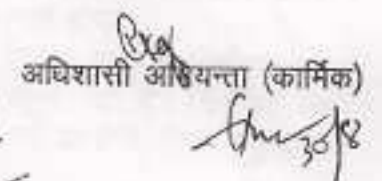 अधिशासी अभियन्ता (कार्मिक)
30/8